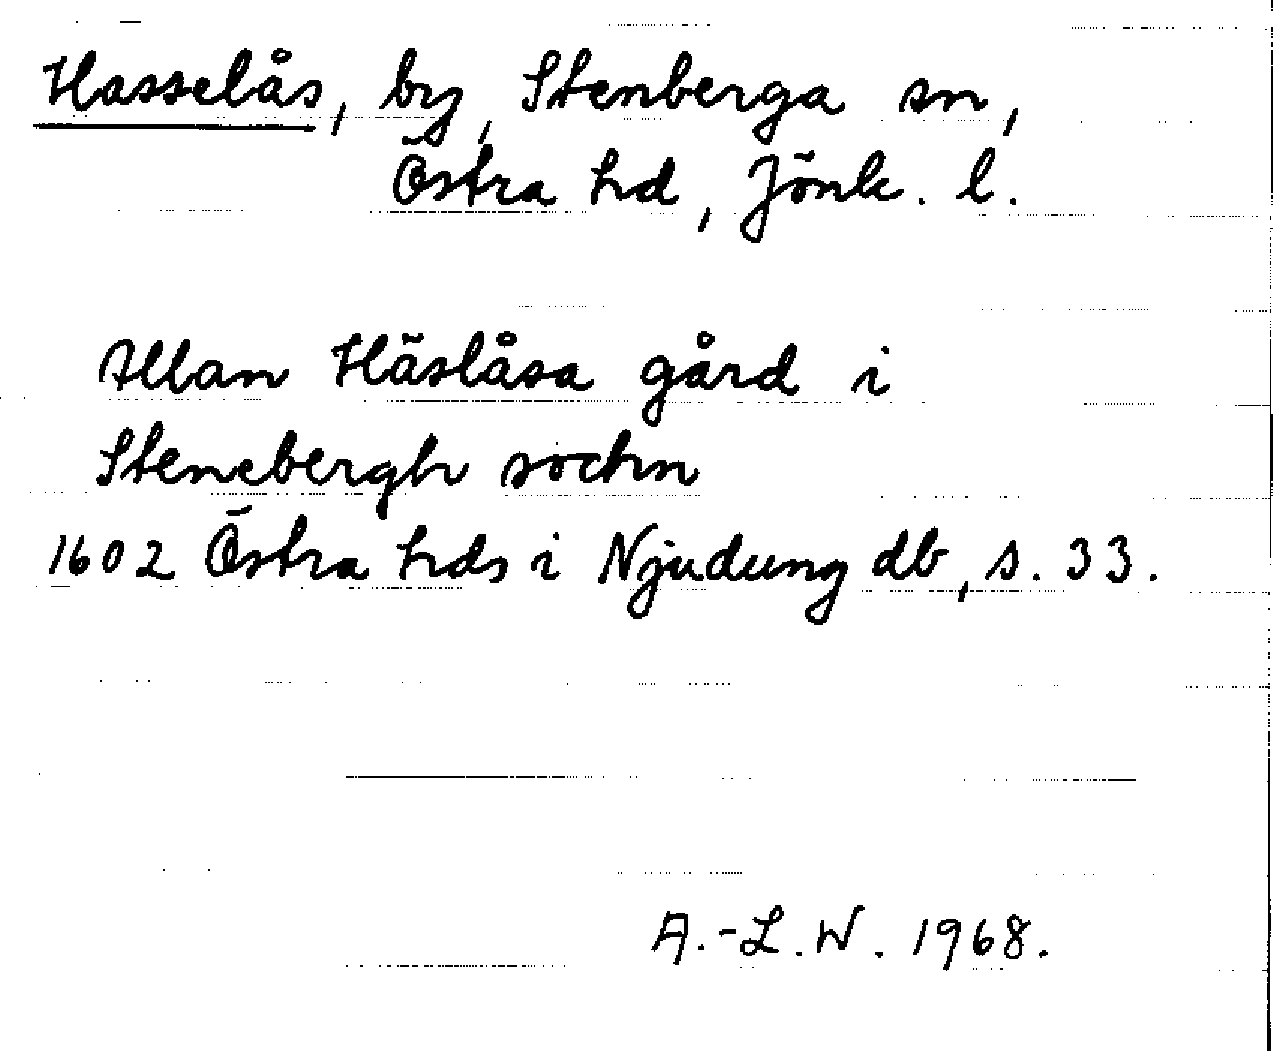 Hasselås, by, Stenberga sn,
Östra hd, Jönk. l.
Allan Häslåsa gård i
Stenebergh sochn
1602 Östra hds i Njudung db, s. 33.
A.-L. W. 1968.